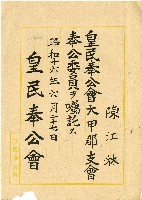 陳江林
皇民奉公會大甲郡支會
奉公委員ヲ囑託ス
昭和十六年六月二十七日
皇民奉公會